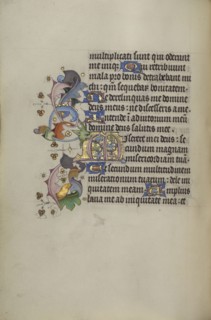 multiplicati sunt qui oderunt
me inique Qui retribuunt
mala pro bonis detrahebant mi
chi: qm sequebar bonitatem
Ne derelinquas me domine
deus meus: ne discesseris a me
Intende in adiutorium meum
domine deus salutis mee
Miserere mei deus: se
cundum magnam
misericordiam tuam
Et secundum multitudinem
miserationum tuarum: dele ini
quitatem meam Amplius
laua me ab iniquitate mea: et